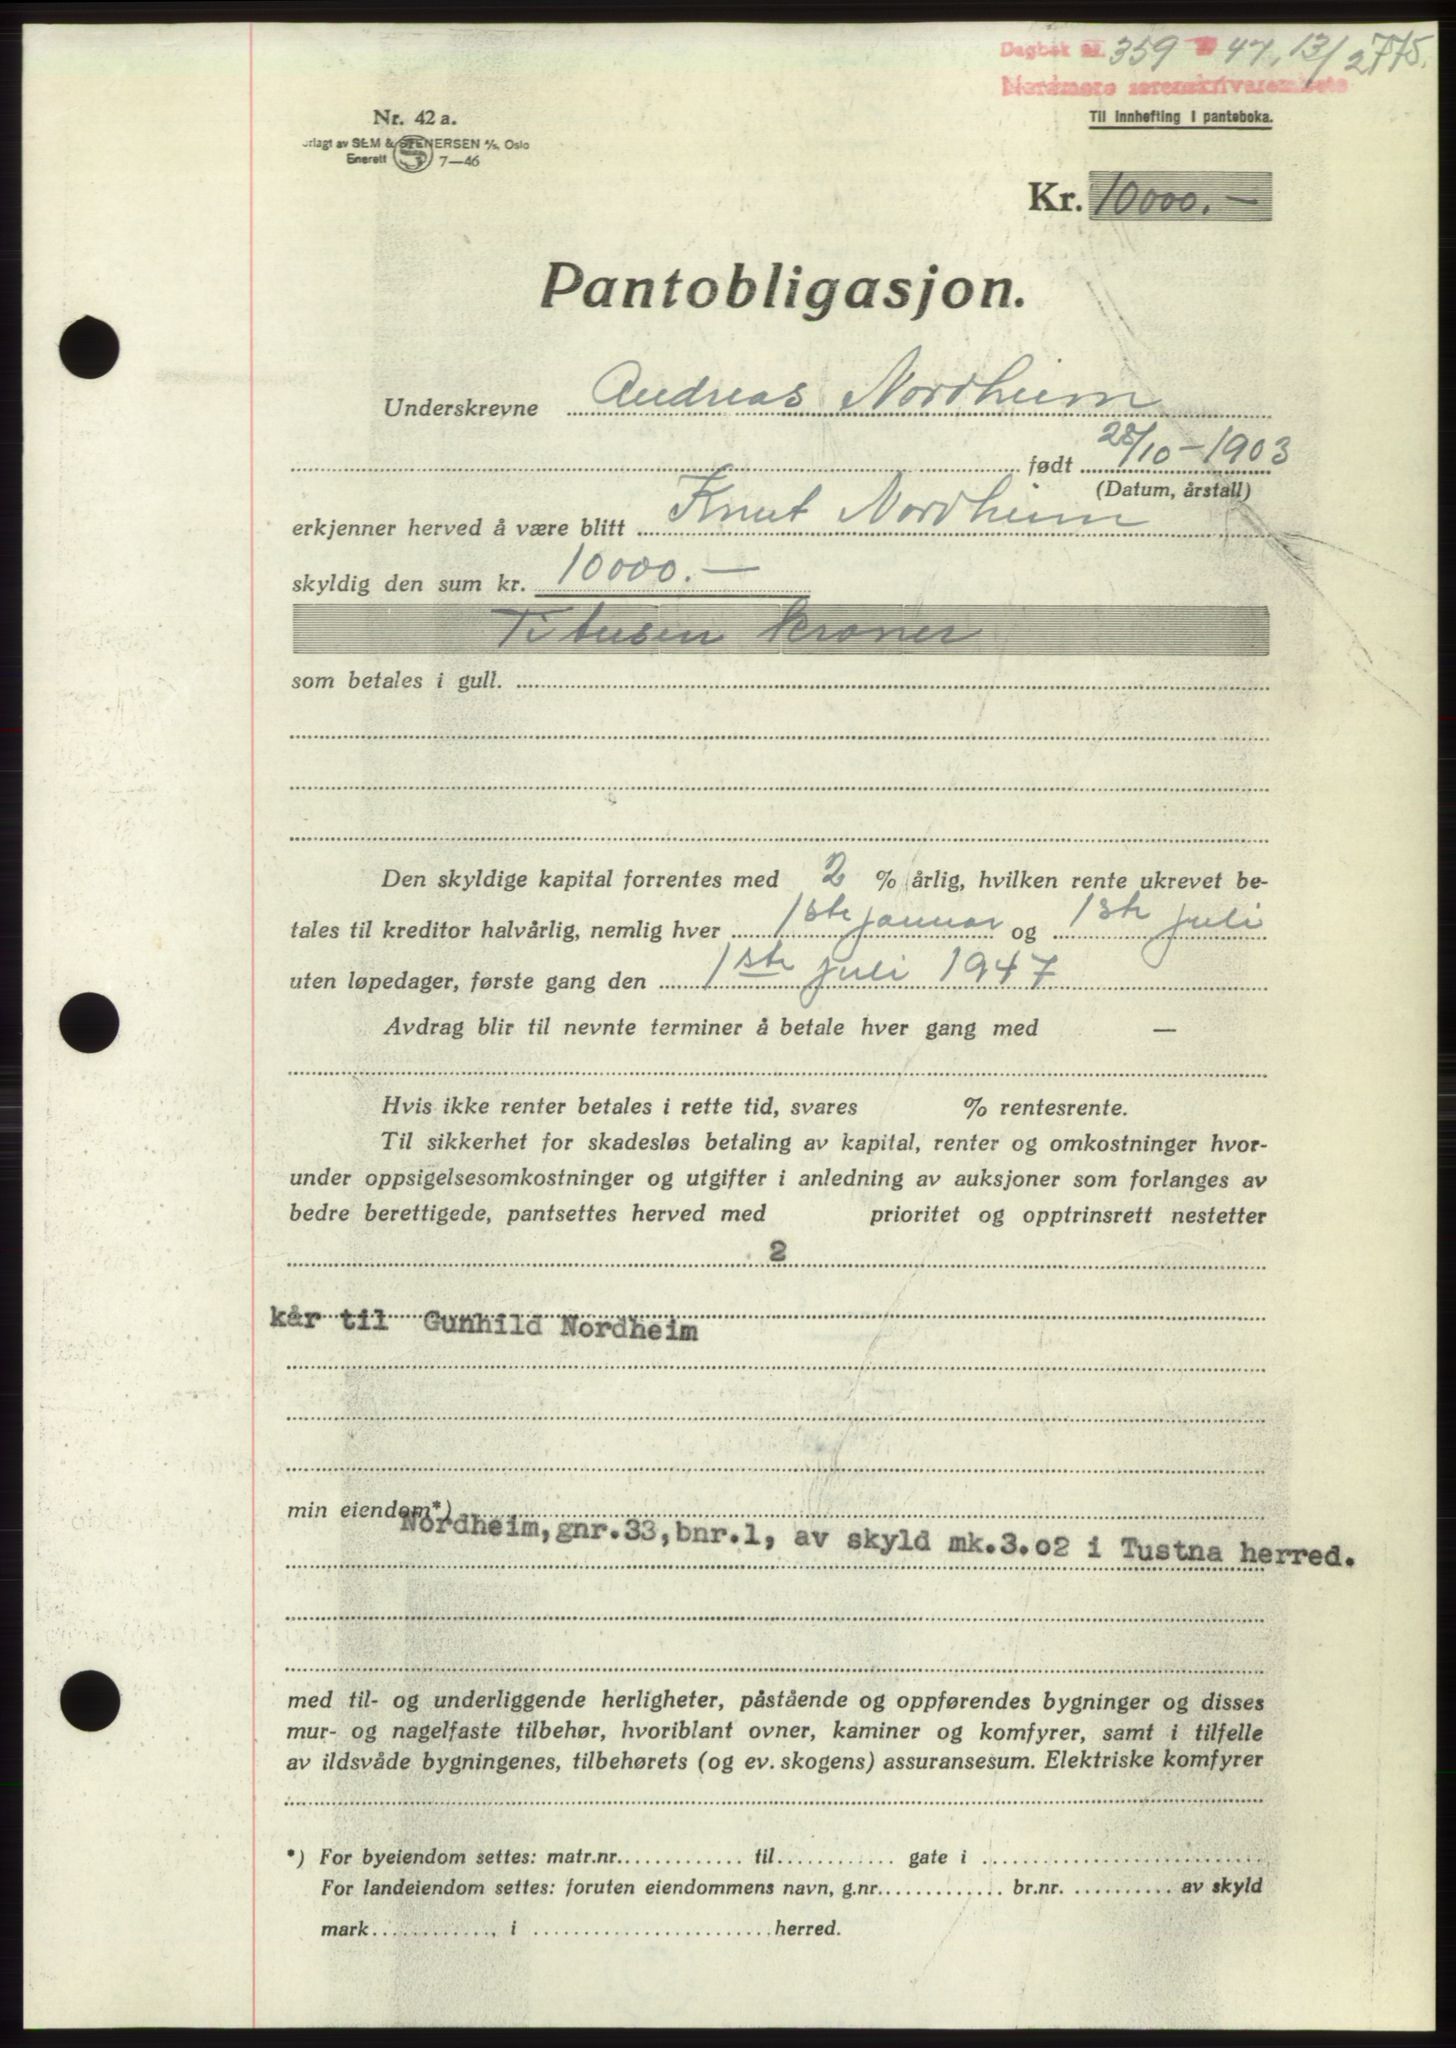 Dagbok nr. 359 47. 13/2 775.
Nordmøre sorenskriverembete
Nr. 42 a.
Til innhefting i panteboka.
rlagt av SEM & STENERSEN A/S, Oslo
Enerett S 7—46
Kr. 10000.—
Pantobligasjon.
Underskrevne Andreas Nordheim
født 28/10-1903
(Datum, årstall)
erkjenner herved å være blitt Knut Nordheim
skyldig den sum kr. 10000.—
Ti tusen kroner
som betales i gull.
Den skyldige kapital forrentes med 2 % årlig, hvilken rente ukrevet be-
tales til kreditor halvårlig, nemlig hver 1ste januar og 1ste juli
uten løpedager, første gang den 1ste juli 1947
Avdrag blir til nevnte terminer å betale hver gang med —
Hvis ikke renter betales i rette tid, svares % rentesrente.
Til sikkerhet for skadesløs betaling av kapital, renter og omkostninger hvor-
under oppsigelsesomkostninger og utgifter i anledning av auksjoner som forlanges av
bedre berettigede, pantsettes herved med prioritet og opptrinsrett nestetter
2
kår til Gunhild Nordheim
min eiendom*)
Nordheim, gnr.33, bnr.1, av skyld mk.3.02 i Tustna herred.
med til- og underliggende herligheter, påstående og oppførendes bygninger og disses
mur- og nagelfaste tilbehør, hvoriblant ovner, kaminer og komfyrer, samt i tilfelle
av ildsvåde bygningenes, tilbehørets (og ev. skogens) assuransesum. Elektriske komfyrer
*) For byeiendom settes: matr.nr. til gate i
For landeiendom settes: foruten eiendommens navn, g.nr. br.nr. av skyld
mark , i herred.